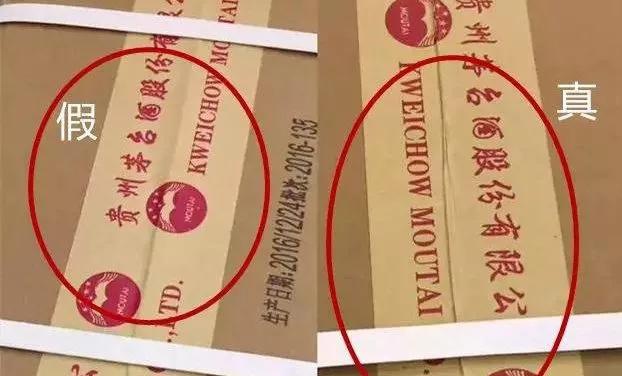 假
贵州茅台酒股份有
KWEICHOW MOUTAI
MOUTAI
MOUTAI
MOUTAI
LTD.
生产日期:2016/12/24批次:2016-135
真
贵州茅台酒股份有限公
KWEICHOW MOUTAI
MOUTAI